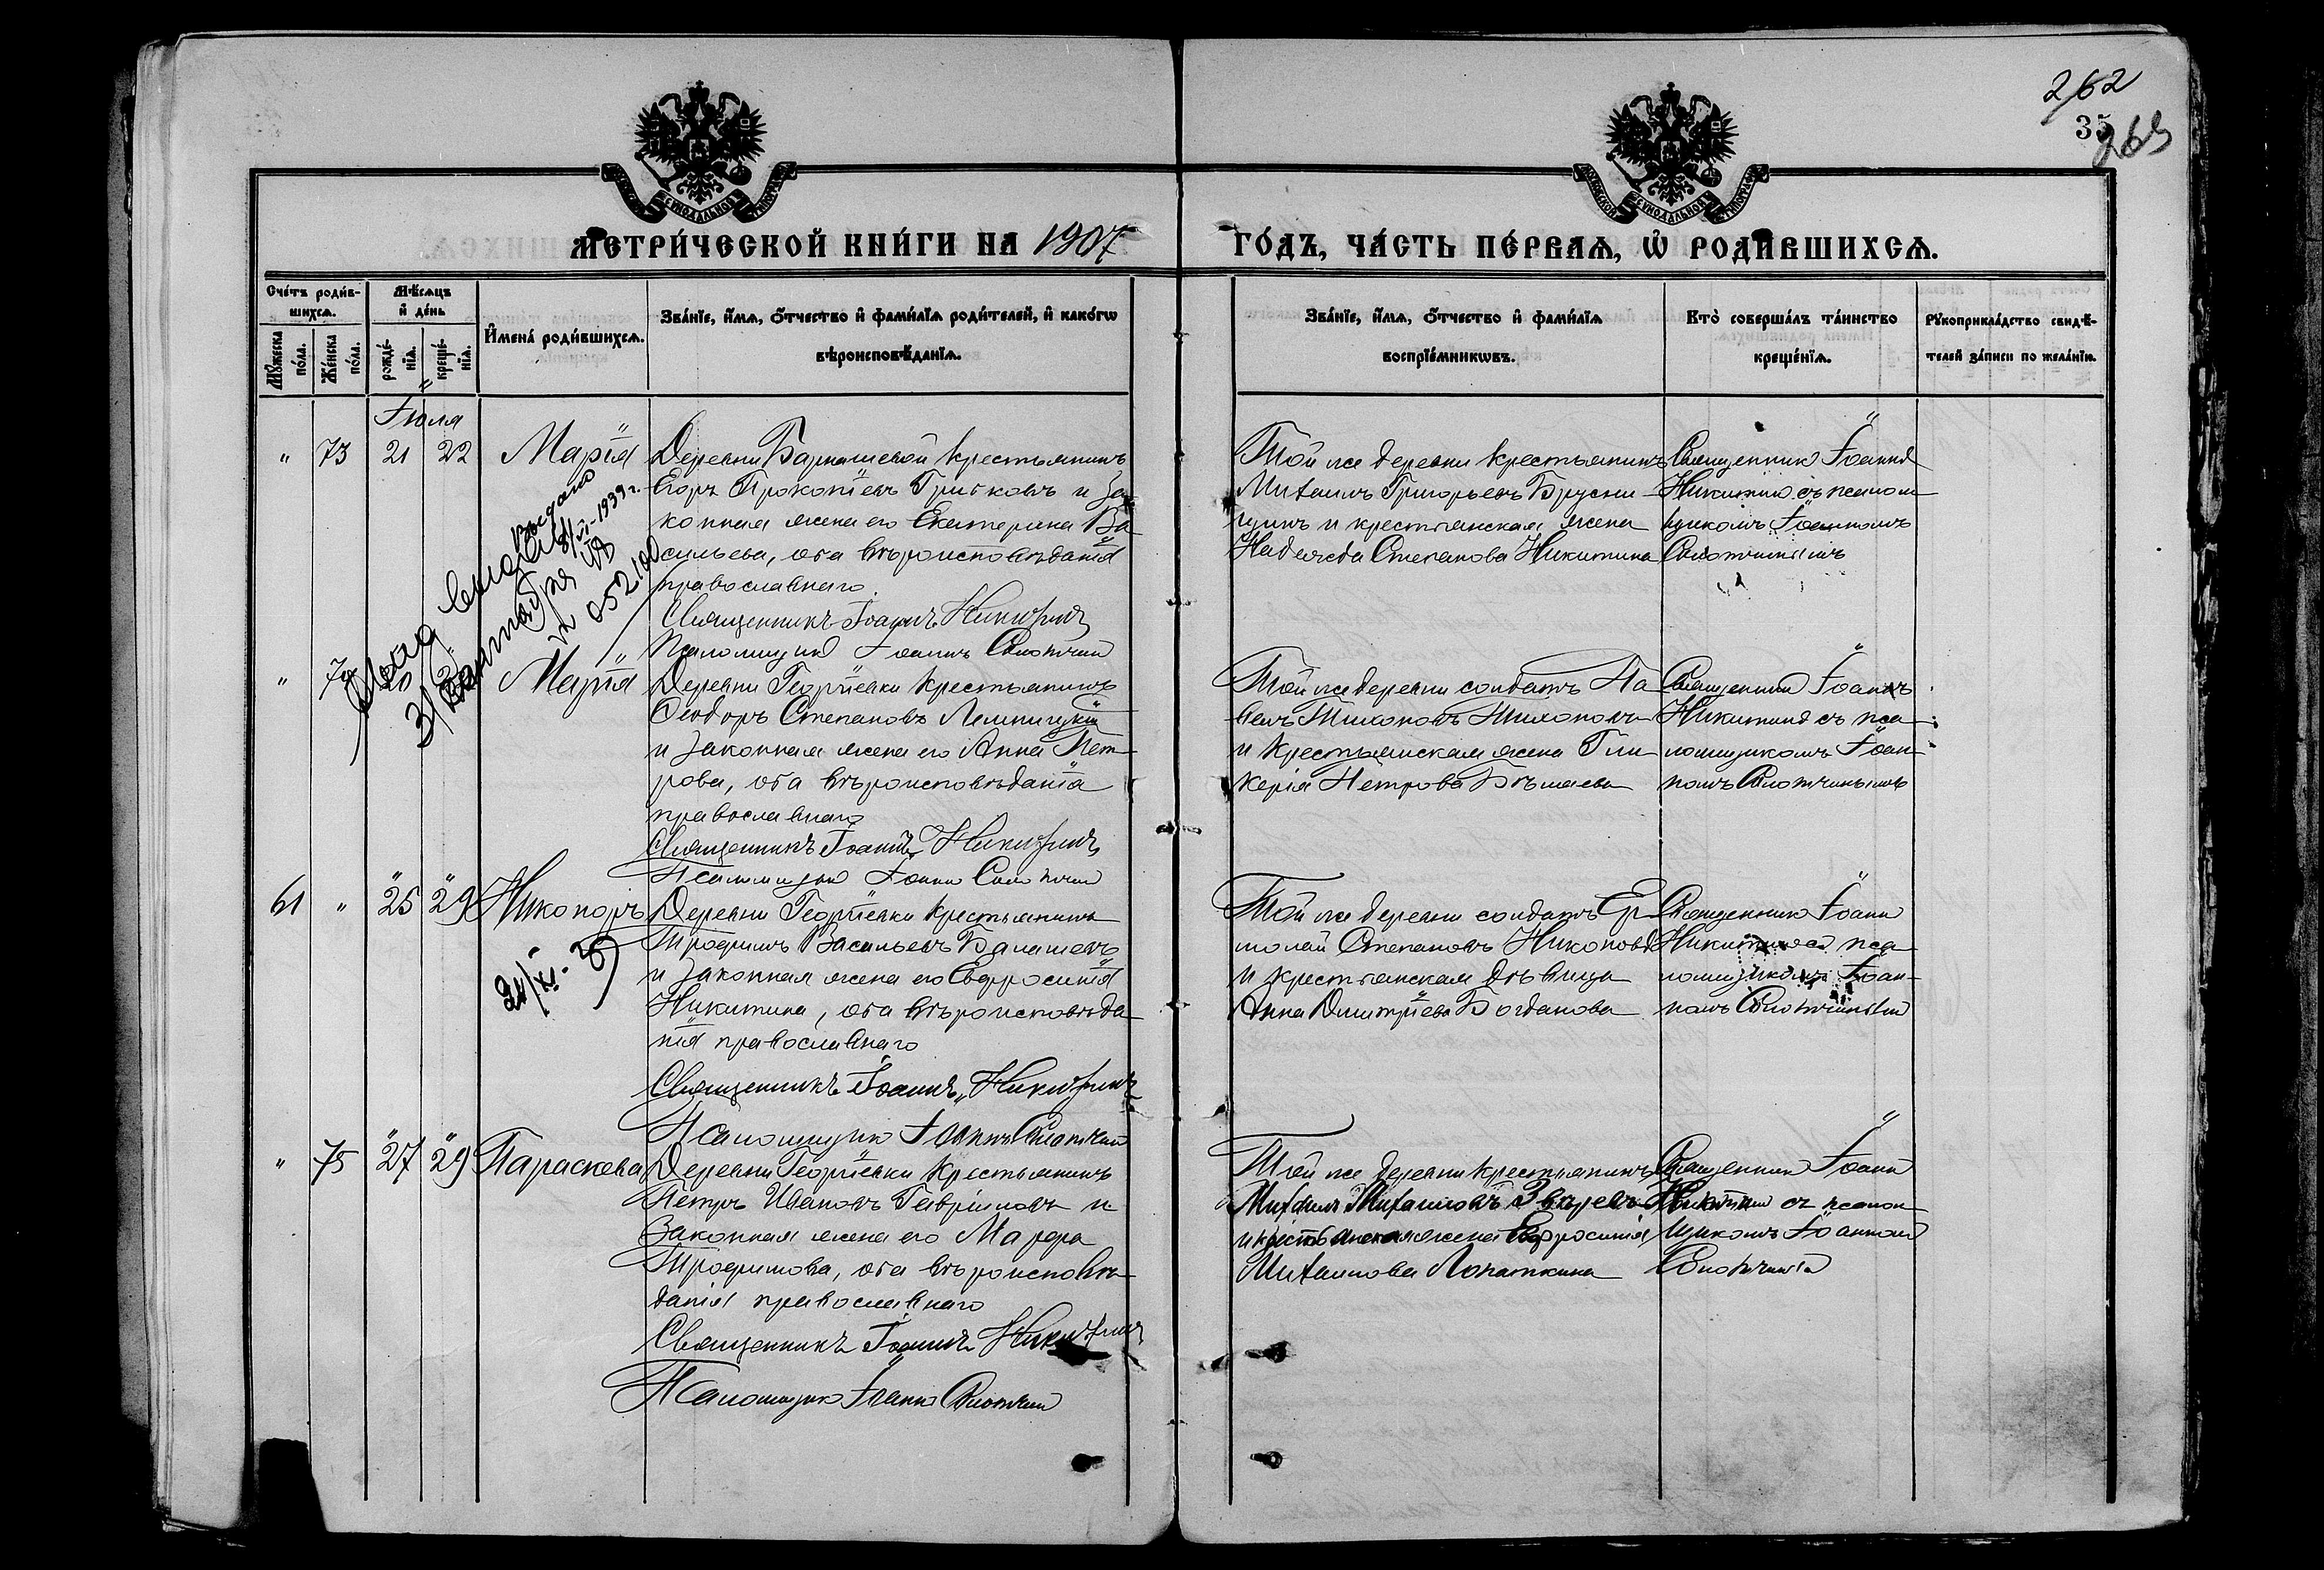 262
35
263
МЕТРИ́ЧЕСКОЙ КНИ́ГИ НА 1907
ГО́ДЪ, ЧА́СТЬ ПЕ́РВАѦ, Ѡ҆ РОДИ́ВШИХСѦ.
Сче́тъ роди́в-
шихсѧ.
Мꙋ́жеска по́ла.
Же́нска по́ла.
Мѣ́сѧцъ
и҆ де́нь
рожде́-
нїѧ.
креще́-
нїѧ.
И҆мена̀ роди́вшихсѧ.
Зва́нїе, и҆́мѧ, ѻ҆́тчество и҆ фами́лїѧ роди́телей, и҆ како́гѡ
вѣроисповѣ́данїѧ.
Зва́нїе, и҆́мѧ, ѻ҆́тчество и҆ фами́лїѧ
воспрїе́мникѡвъ.
Кто̀ соверша́лъ та́инство
креще́нїѧ.
Рꙋкоприкла́дство свидѣ́-
телей за́писи по жела́нїю.
Іюля
" 73 21 22 Марія
Деревни Барнашевой крестьянинъ
Егоръ Прокопіевъ Грибковъ и за-
конная жена его Екатерина Ва-
сильева, оба вѣроисповѣданія
православнаго.
Священникъ Іоаннъ Никитинъ
Псаломщикъ Іоаннъ
Той же деревни крестьянинъ
Михаилъ Григорьевъ
и крестьянская жена
Надежда Степанова Никитина
Священникъ Іоаннъ
Никитинъ съ псалом-
щикомъ Іоанномъ
выдано
8/VI-1939 г.
№ 052100
" 74 Марія
Деревни Георгіевки крестьянинъ
Ѳеодоръ Степановъ
и законная жена его Анна Пет-
рова, оба вѣроисповѣданія
православнаго
Священникъ Іоаннъ Никитинъ
Псаломщикъ Іоаннъ
Той же деревни солдатъ Па-
велъ Тихоновъ
и крестьянская жена Гли-
керія Петрова
Священникъ Іоаннъ
Никитинъ съ пса-
ломщикомъ Іоан-
номъ
61 " 25 29 Никоноръ
Деревни Георгіевки крестьянинъ
Трофимъ Васильевъ Балашевъ
и законная жена его Евфросинія
Никитина, оба вѣроисповѣда-
нія православнаго
Священникъ Іоаннъ Никитинъ
Псаломщикъ Іоаннъ
Той же деревни солдатъ Ер-
молай Степановъ
и крестьянская дѣвица
Анна Димитріева Богданова
Священникъ Іоаннъ
Никитинъ съ пса-
ломщикомъ Іоан-
номъ
" 75 27 29 Параскева
Деревни Георгіевки крестьянинъ
Петръ Ивановъ Гавриловъ и
законная жена его Марфа
Трофимова, оба вѣроисповѣ-
данія православнаго
Священникъ Іоаннъ Никитинъ
Псаломщикъ Іоаннъ
Той же деревни крестьянинъ
Михаилъ Михаиловъ Звѣревъ
и крестьянская жена Евфросинія
Михаилова Лопаткина
Священникъ Іоаннъ
Никитинъ съ псалом-
щикомъ Іоанномъ